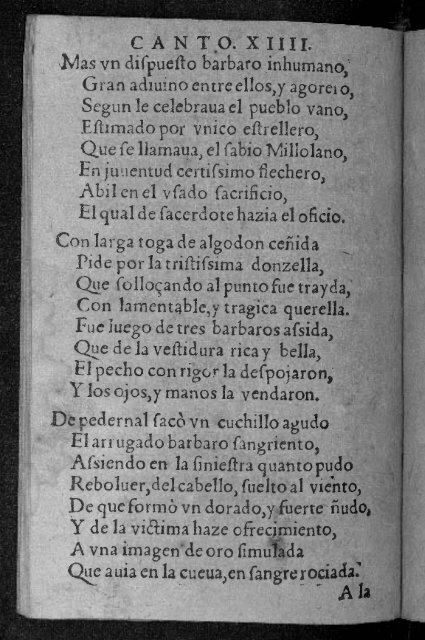 CANTO. XIIII.
Mas vn dispuesto barbaro inhumano,
Gran adiuino entre ellos, y agorero,
Segun le celebraua el pueblo vano,
Estimado por vnico estrellero,
Que se llamaua, el sabio Millolano,
En juuentud certissimo flechero,
Abil en el vsado sacrificio,
El qual de sacerdote hazia el oficio.
Con larga toga de algodon ceñida
Pide por la tristissima donzella,
Que solloçando al punto fue trayda,
Con lamentable, y tragica querella.
Fue luego de tres barbaros assida,
Que de la vestidura rica y bella,
El pecho con rigor la despojaron,
Y los ojos, y manos la vendaron.
De pedernal sacò vn cuchillo agudo
El arrugado barbaro sangriento,
Assiendo en la siniestra quanto pudo
Reboluer, del cabello, suelto al viento,
De que formò vn dorado, y fuerte ñudo,
Y de la victima haze ofrecimiento,
A vna imagen de oro simulada
Que auia en la cueua, en sangre rociada.
A la